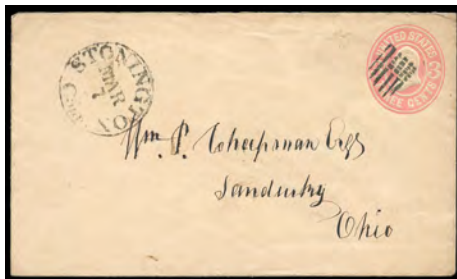 STONINGTON
MAR
7
UNITED STATES
THREE CENTS
Wm. P. Chapman Esq
Sandusky
Ohio